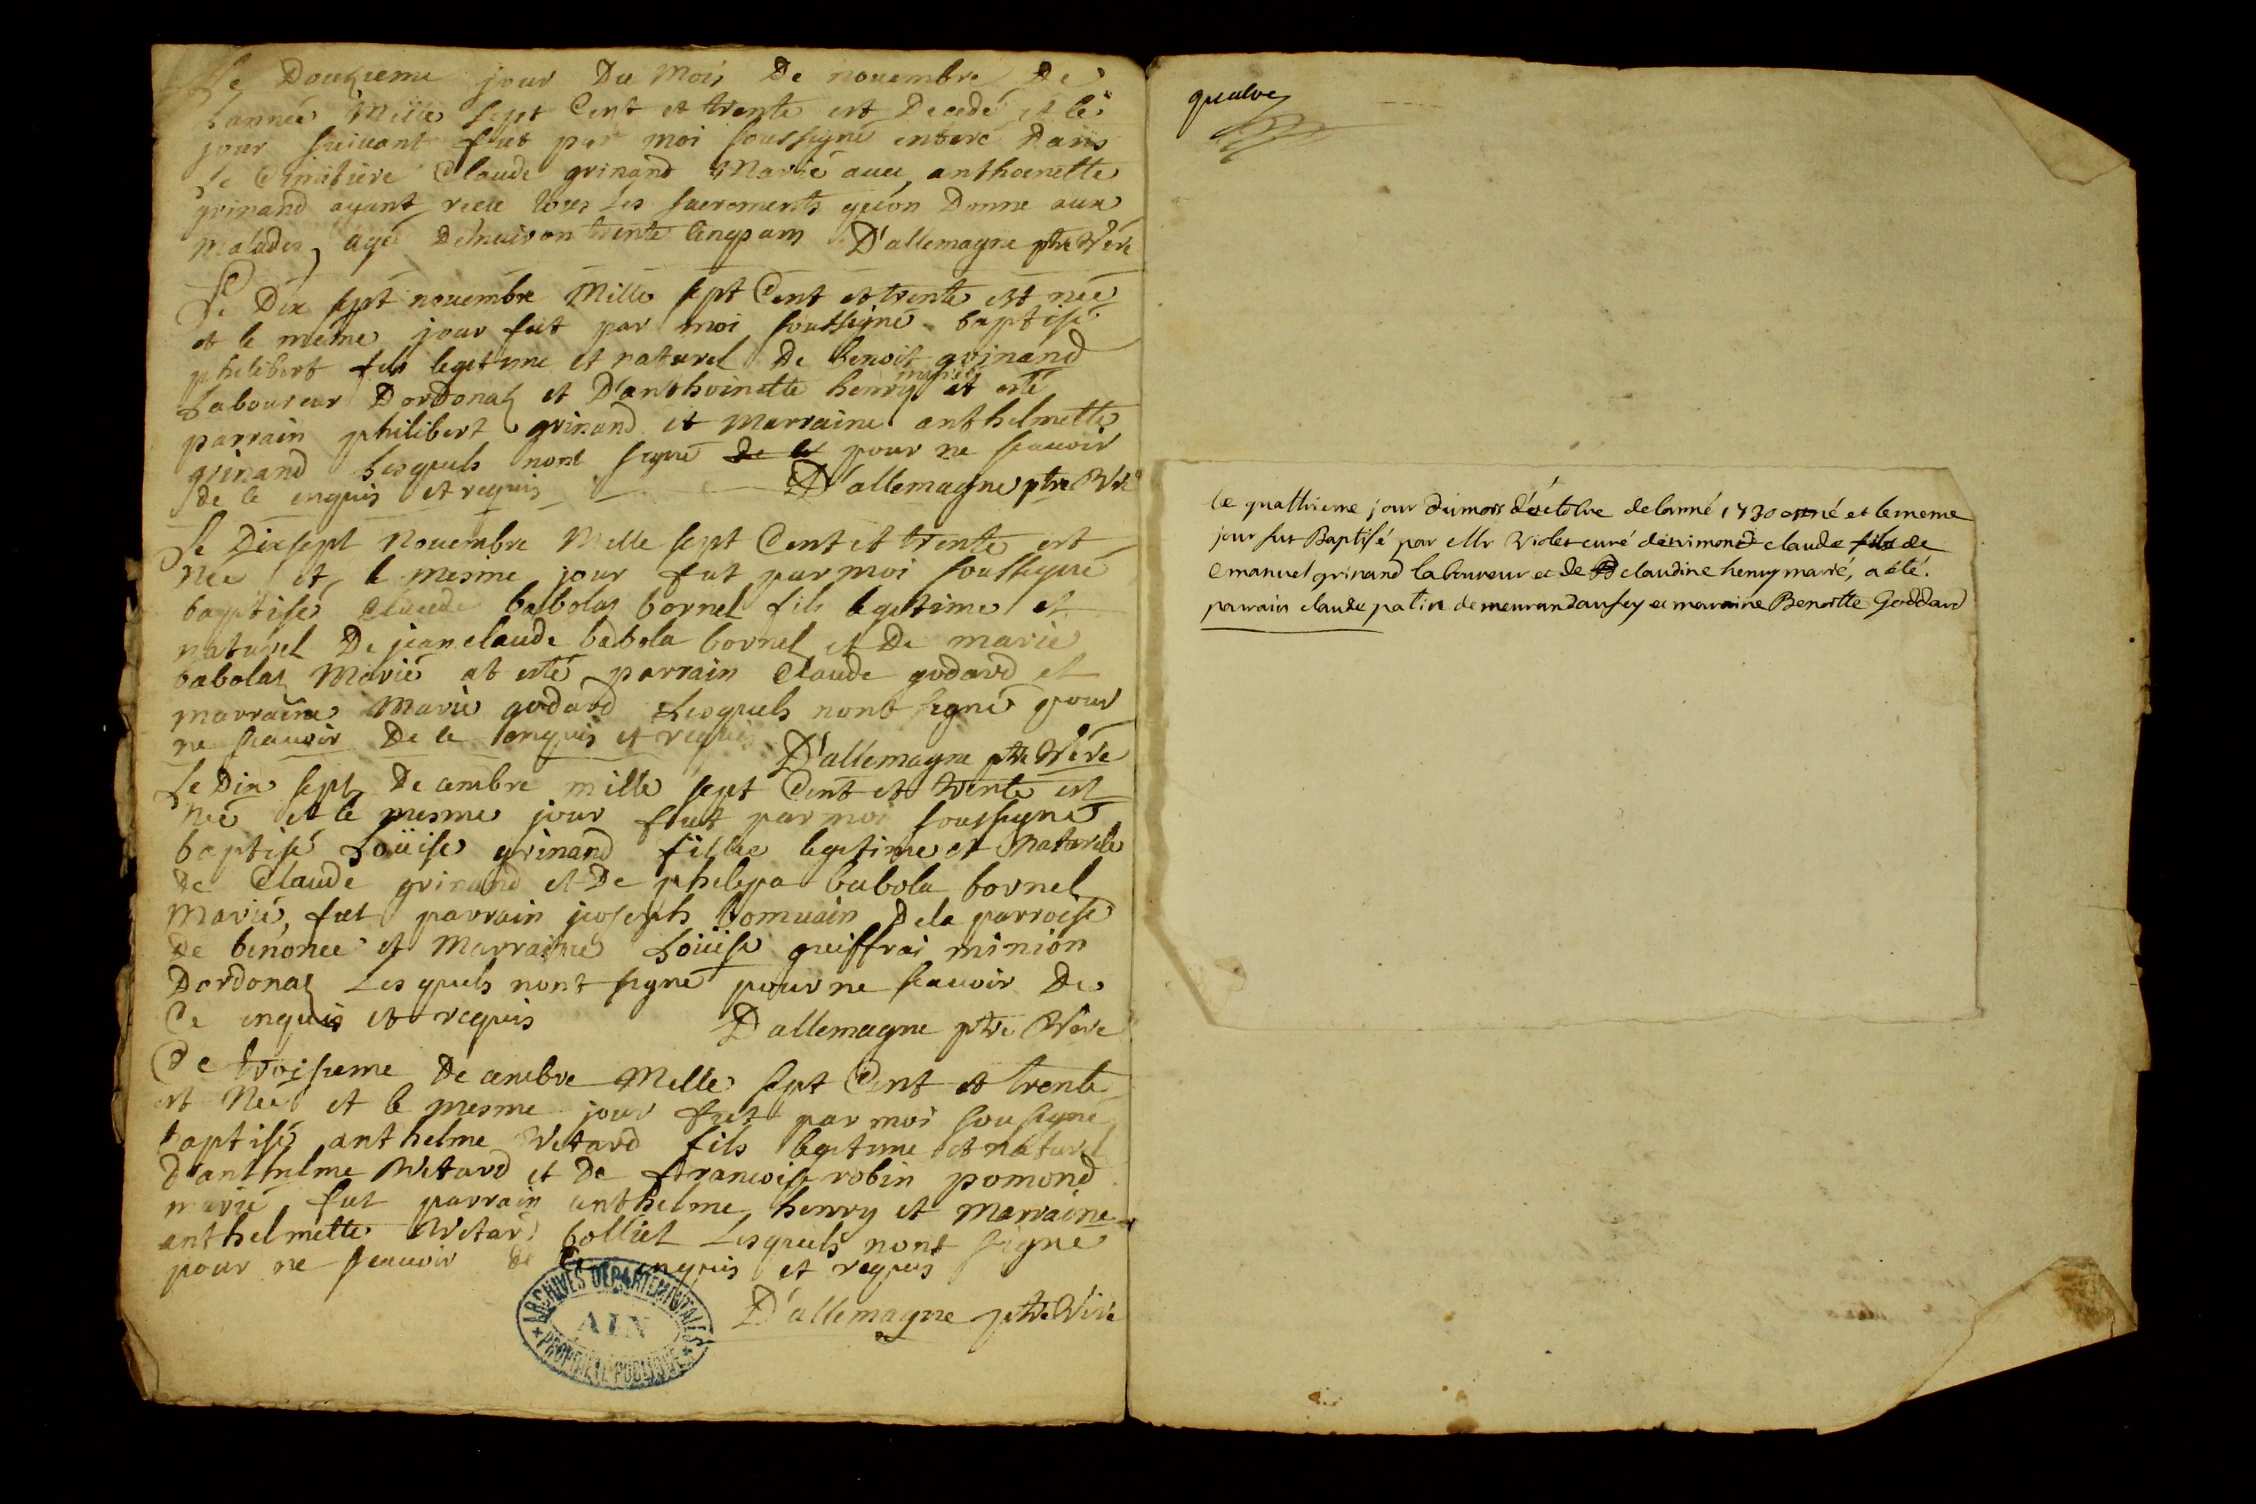 Le Douzieme jour Du Mois De nouembre De
Lannée Mille sept Cent et trente est Decedé et le
jour suiuant fut par moi soussigné enteré Dans
le Cimitiere Claude grinand Marié auec anthoinette
grinand ayant receu tous les sacrements qu'on Donne aux
Malades, agé trente cinq ans D'allemagne ptre
Le Dix sept nouembre Mille sept Cent et trente est née
et le meme jour fut par moi soussigné baptisé
philibert fils legitime et naturel De benoit grinand
Laboureur Dordonaz et D'anthoinette henry mariés at esté
parrain philibert grinand et Marraine anthelmette
grinand Lesquels nont signé de le pour ne scauoir
de le enquis et requis D'allemagne ptre
Le Dixsept Nouembre Mille sept Cent et trente est
née et le mesme jour fut par moi soussigné
baptisé Claude babolaz bornel fils legitime et
naturel De jean claude babola bornel et De marie
babolaz Marié at esté parrain Claude godard et
marraine Marie godard Lesquels nont signé pour
ne scauoir De le enquis et requis D'allemagne ptre
Le Dix sept Decembre mille sept Cent et trente est
née et le mesme jour fut par moi soussigné
baptisé Loüise grinand fillie legitime et naturelle
de Claude grinand et De phelipa babola bornel
Marié, fut parrain joseph De la parroise
de benonce et Marraine Loüise guiffrai minion
Dordonaz Lesquels nont signé pour ne scauoir De
Ce enquis et requis D'allemagne ptre
Le troisieme Decembre Mille sept Cent et trente
est Née et le mesme jour fut par moi sousigné
baptisé anthelme Vetard fils legitime et naturel
D'anthelme Vetard et De francoise robin pomond
marié fut parrain anthelme henry et Marraine
anthelmette Vetard bolliet Lesquels nont signé
pour ne scauoir de Ce enquis et requis
D'allemagne ptre
ARCHIVES DÉPARTEMENTALES
AIN
PROPRIÉTÉ PUBLIQUE
le quattrieme jour du mois d'octobre de lanné 1730 est né et le meme
jour fut Baptisé par Mr Violet curé claude fils de
emanuel grinand laboureur et de claudine henry marié, a été
parrain claude patin et maraine Benoitte Goddard